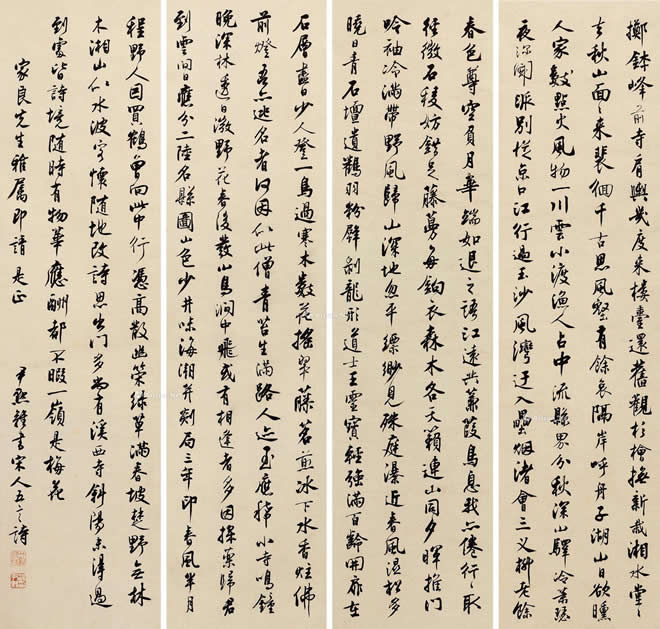 擲鉢峰前寺肩輿幾度來樓臺還舊觀杉檜擁新栽湘水堂堂
去秋山面面來裴徊千古思風壑有餘哀隔岸呼舟子湖山日欲曛
人家數點火風物一川雲小渡漁人占中流縣界分秋深山驛冷葉聽
夜深聞派別從京口江行過玉沙風灣迂入壘烟渚會三义柳老餘
春色尊空負月華端如退之語江遠共蒹葭馬息我亦倦行行取
徑微石稜妨錯足藤蔓每鉤衣森木各天籟連山同夕暉推門
吟袖冷滿帶野風歸山深地忽平縹緲見殊庭瀑近春風濕松多
曉日青石壇遺鶴羽粉壁剝龍形道士王靈寶輕強滿百齡開扉在
石層盡日少人登一鳥過寒木數花搖翠藤茗煎冰下水香炷佛
前燈吾亦逃名者何因似此僧青苔生滿路人迹至應稀小寺鳴鐘
晚深林透日微野花春後發山鳥澗中飛或有相逢者多因採藥歸君
到雲間日應分二陸名縣圖山色少井味海潮并劇局三年印春風半月
程野人因買鶴曾向此中行憑高散幽策綠草滿春坡楚野無林
木湘山似水波客懷隨地改詩思出門多尚有溪西寺斜陽未得過
到處皆詩境隨時有物華應酬都不暇一嶺是梅花
家良先生雅屬即請是正
尹默雜書宋人五言詩